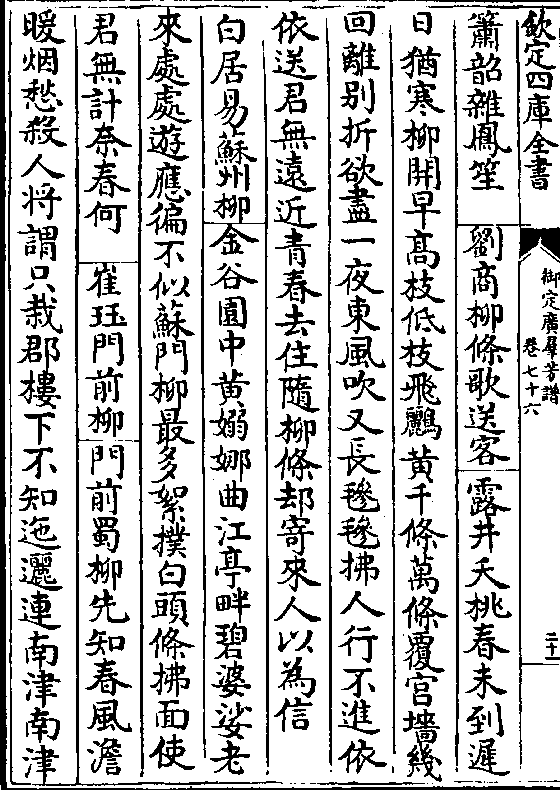 欽定四庫全書
御定廣羣芳譜
卷七十六
二十
簫韶雜鳳笙 劉商柳條歌送客 露井夭桃春未到遲
日猶寒柳開早髙枝低枝飛鸝黄千條萬條覆宫墻幾
回離别折欲盡一夜東風吹又長毿毿拂人行不進依
依送君無逺近青春去住隨柳條却寄來人以為信
白居易蘇州柳 金谷園中黄嫋娜曲江亭畔碧婆娑老
來處處遊應徧不似蘇門柳最多絮撲白頭條拂面使
君無計奈春何 崔珏門前柳 門前蜀柳先知春風澹
暖烟愁殺人将謂只栽郡樓下不知迤邐連南津南津